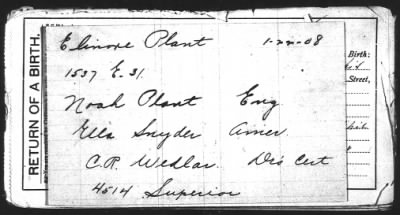 RETURN OF A BIRTH.
Elinore Plant 1-22-08
1537 E. 31.
Noah Plant Eng
Ella Snyder Amer.
C.R. Wedlar. Dis Cert
4514 Superior
Birth:
Street,